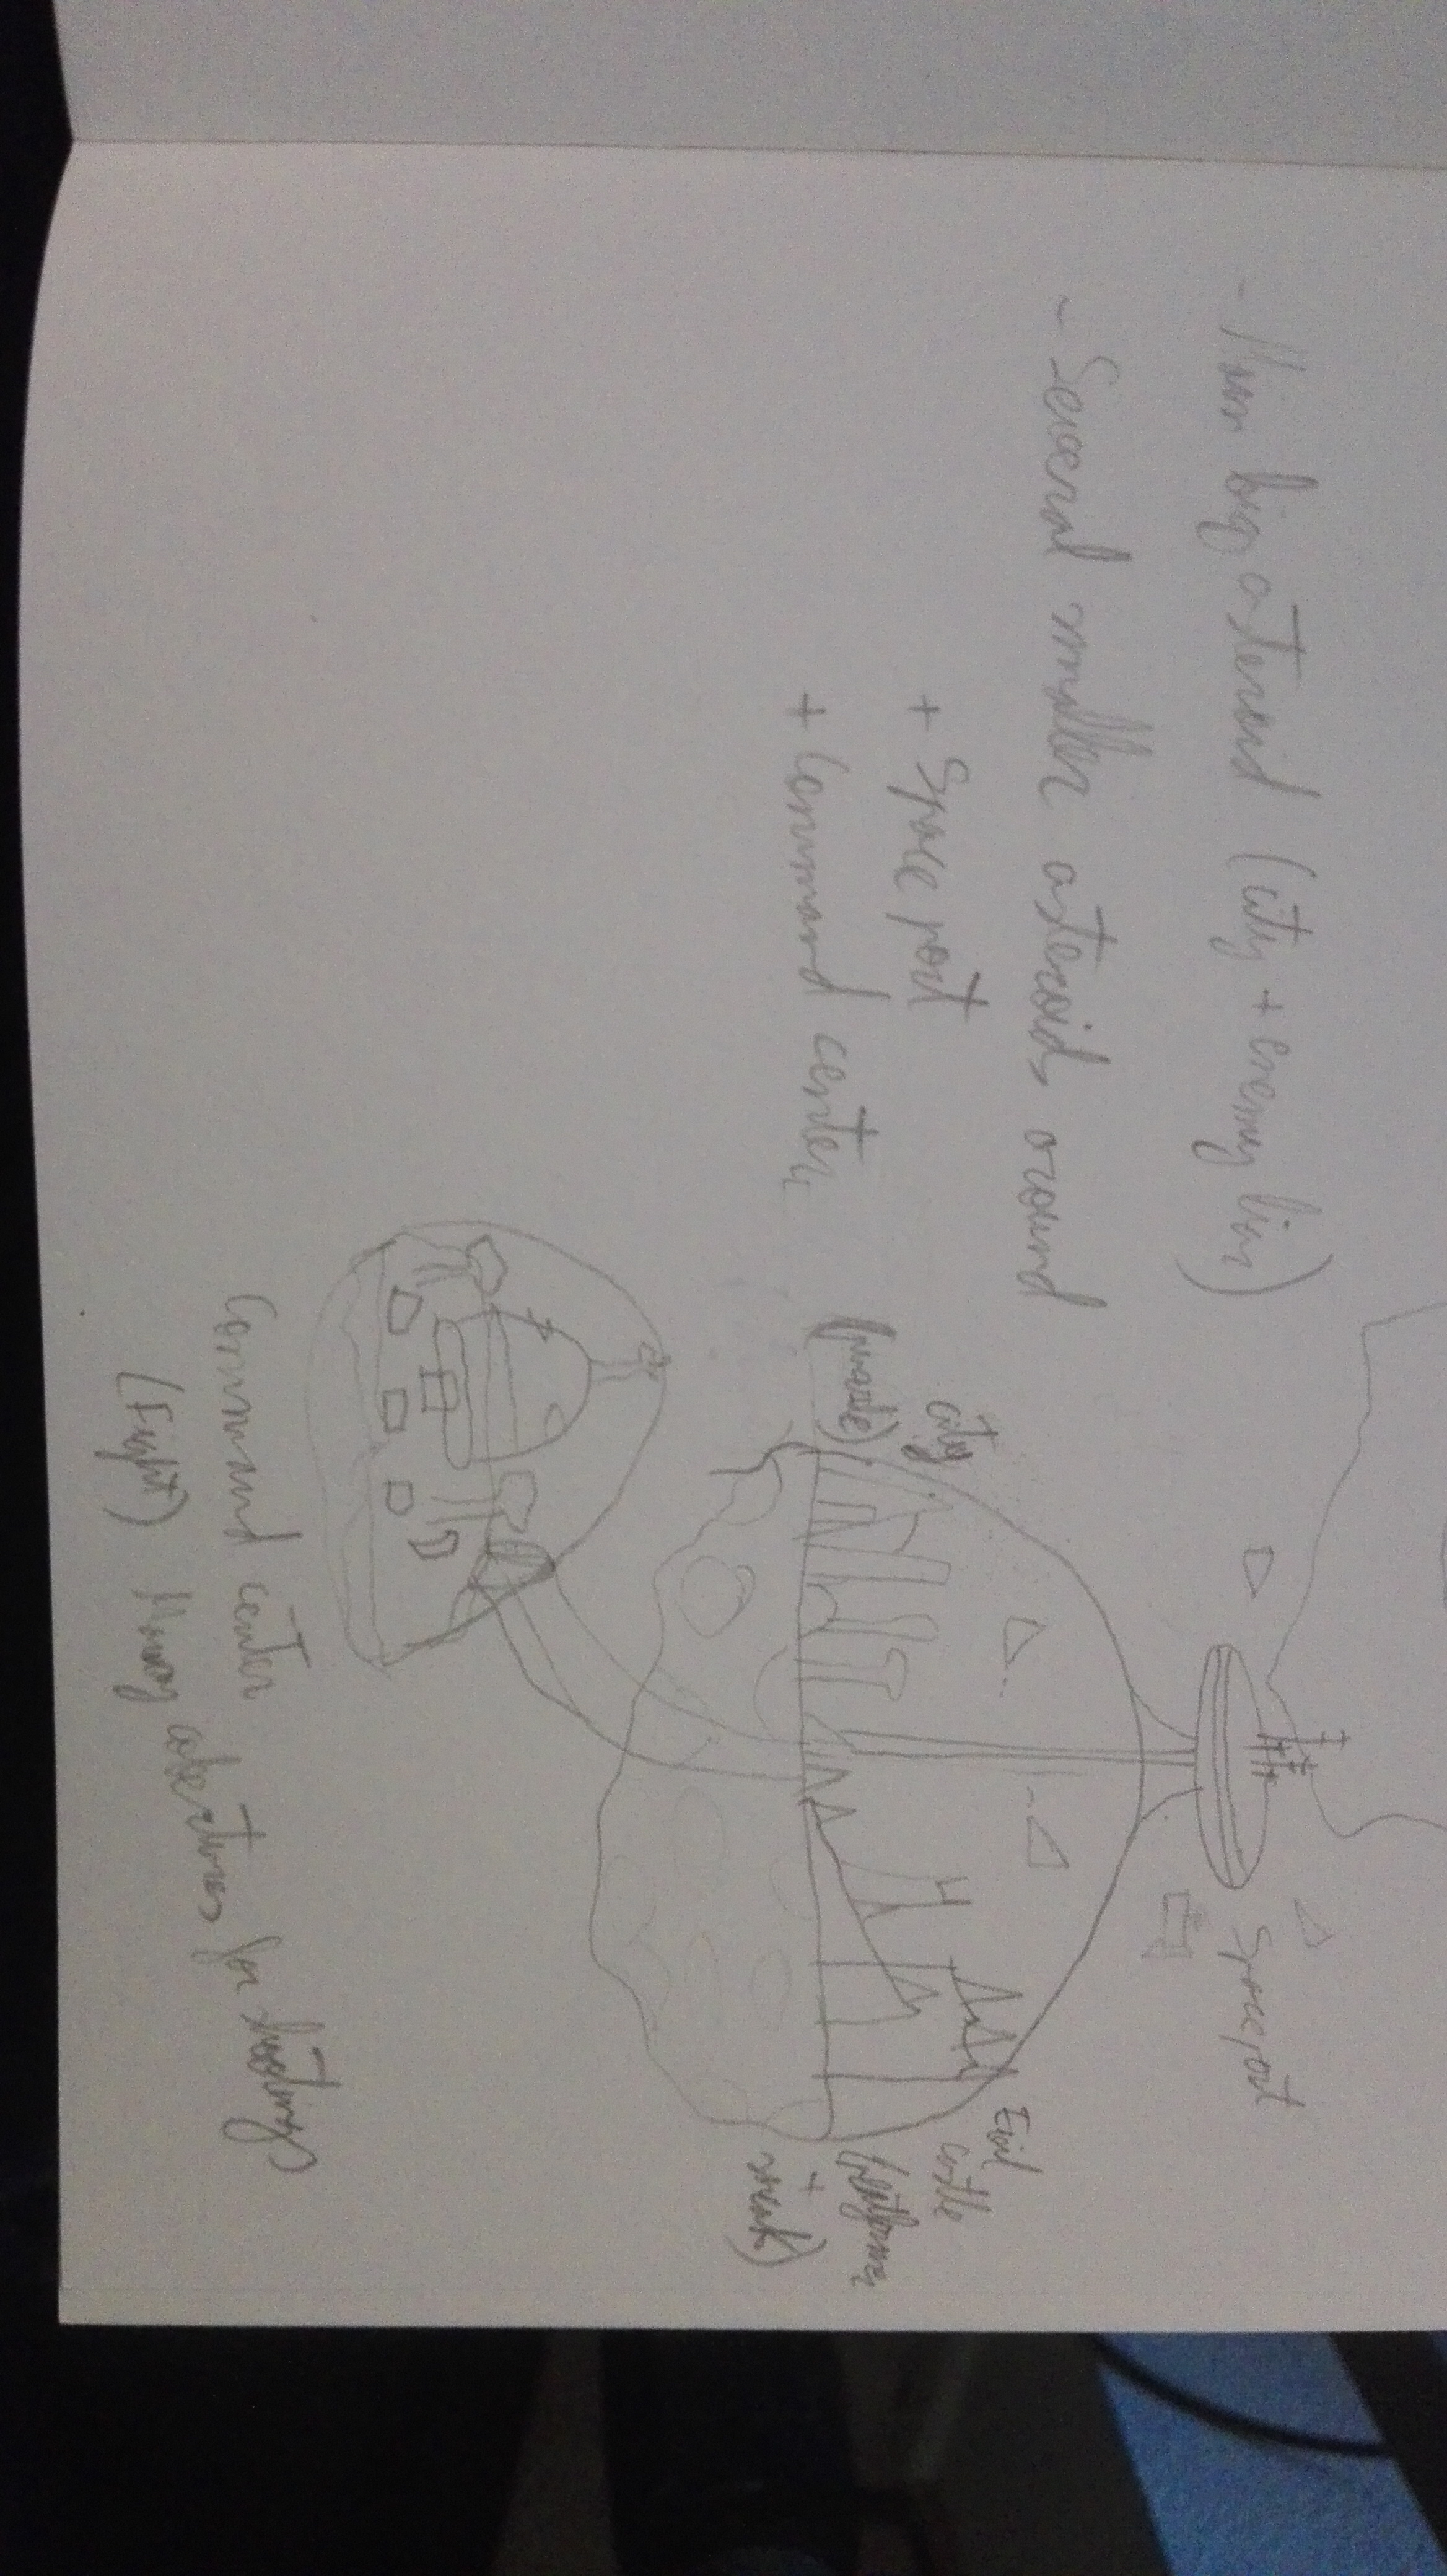 - Main big asteroid (city + enemy liar)
- Several smaller asteroids around
+ Space port
+ Command center
Spaceport
City
Evil
castle
(platforms
+
sneak)
Command center
(Fight) Many obertures for shooting